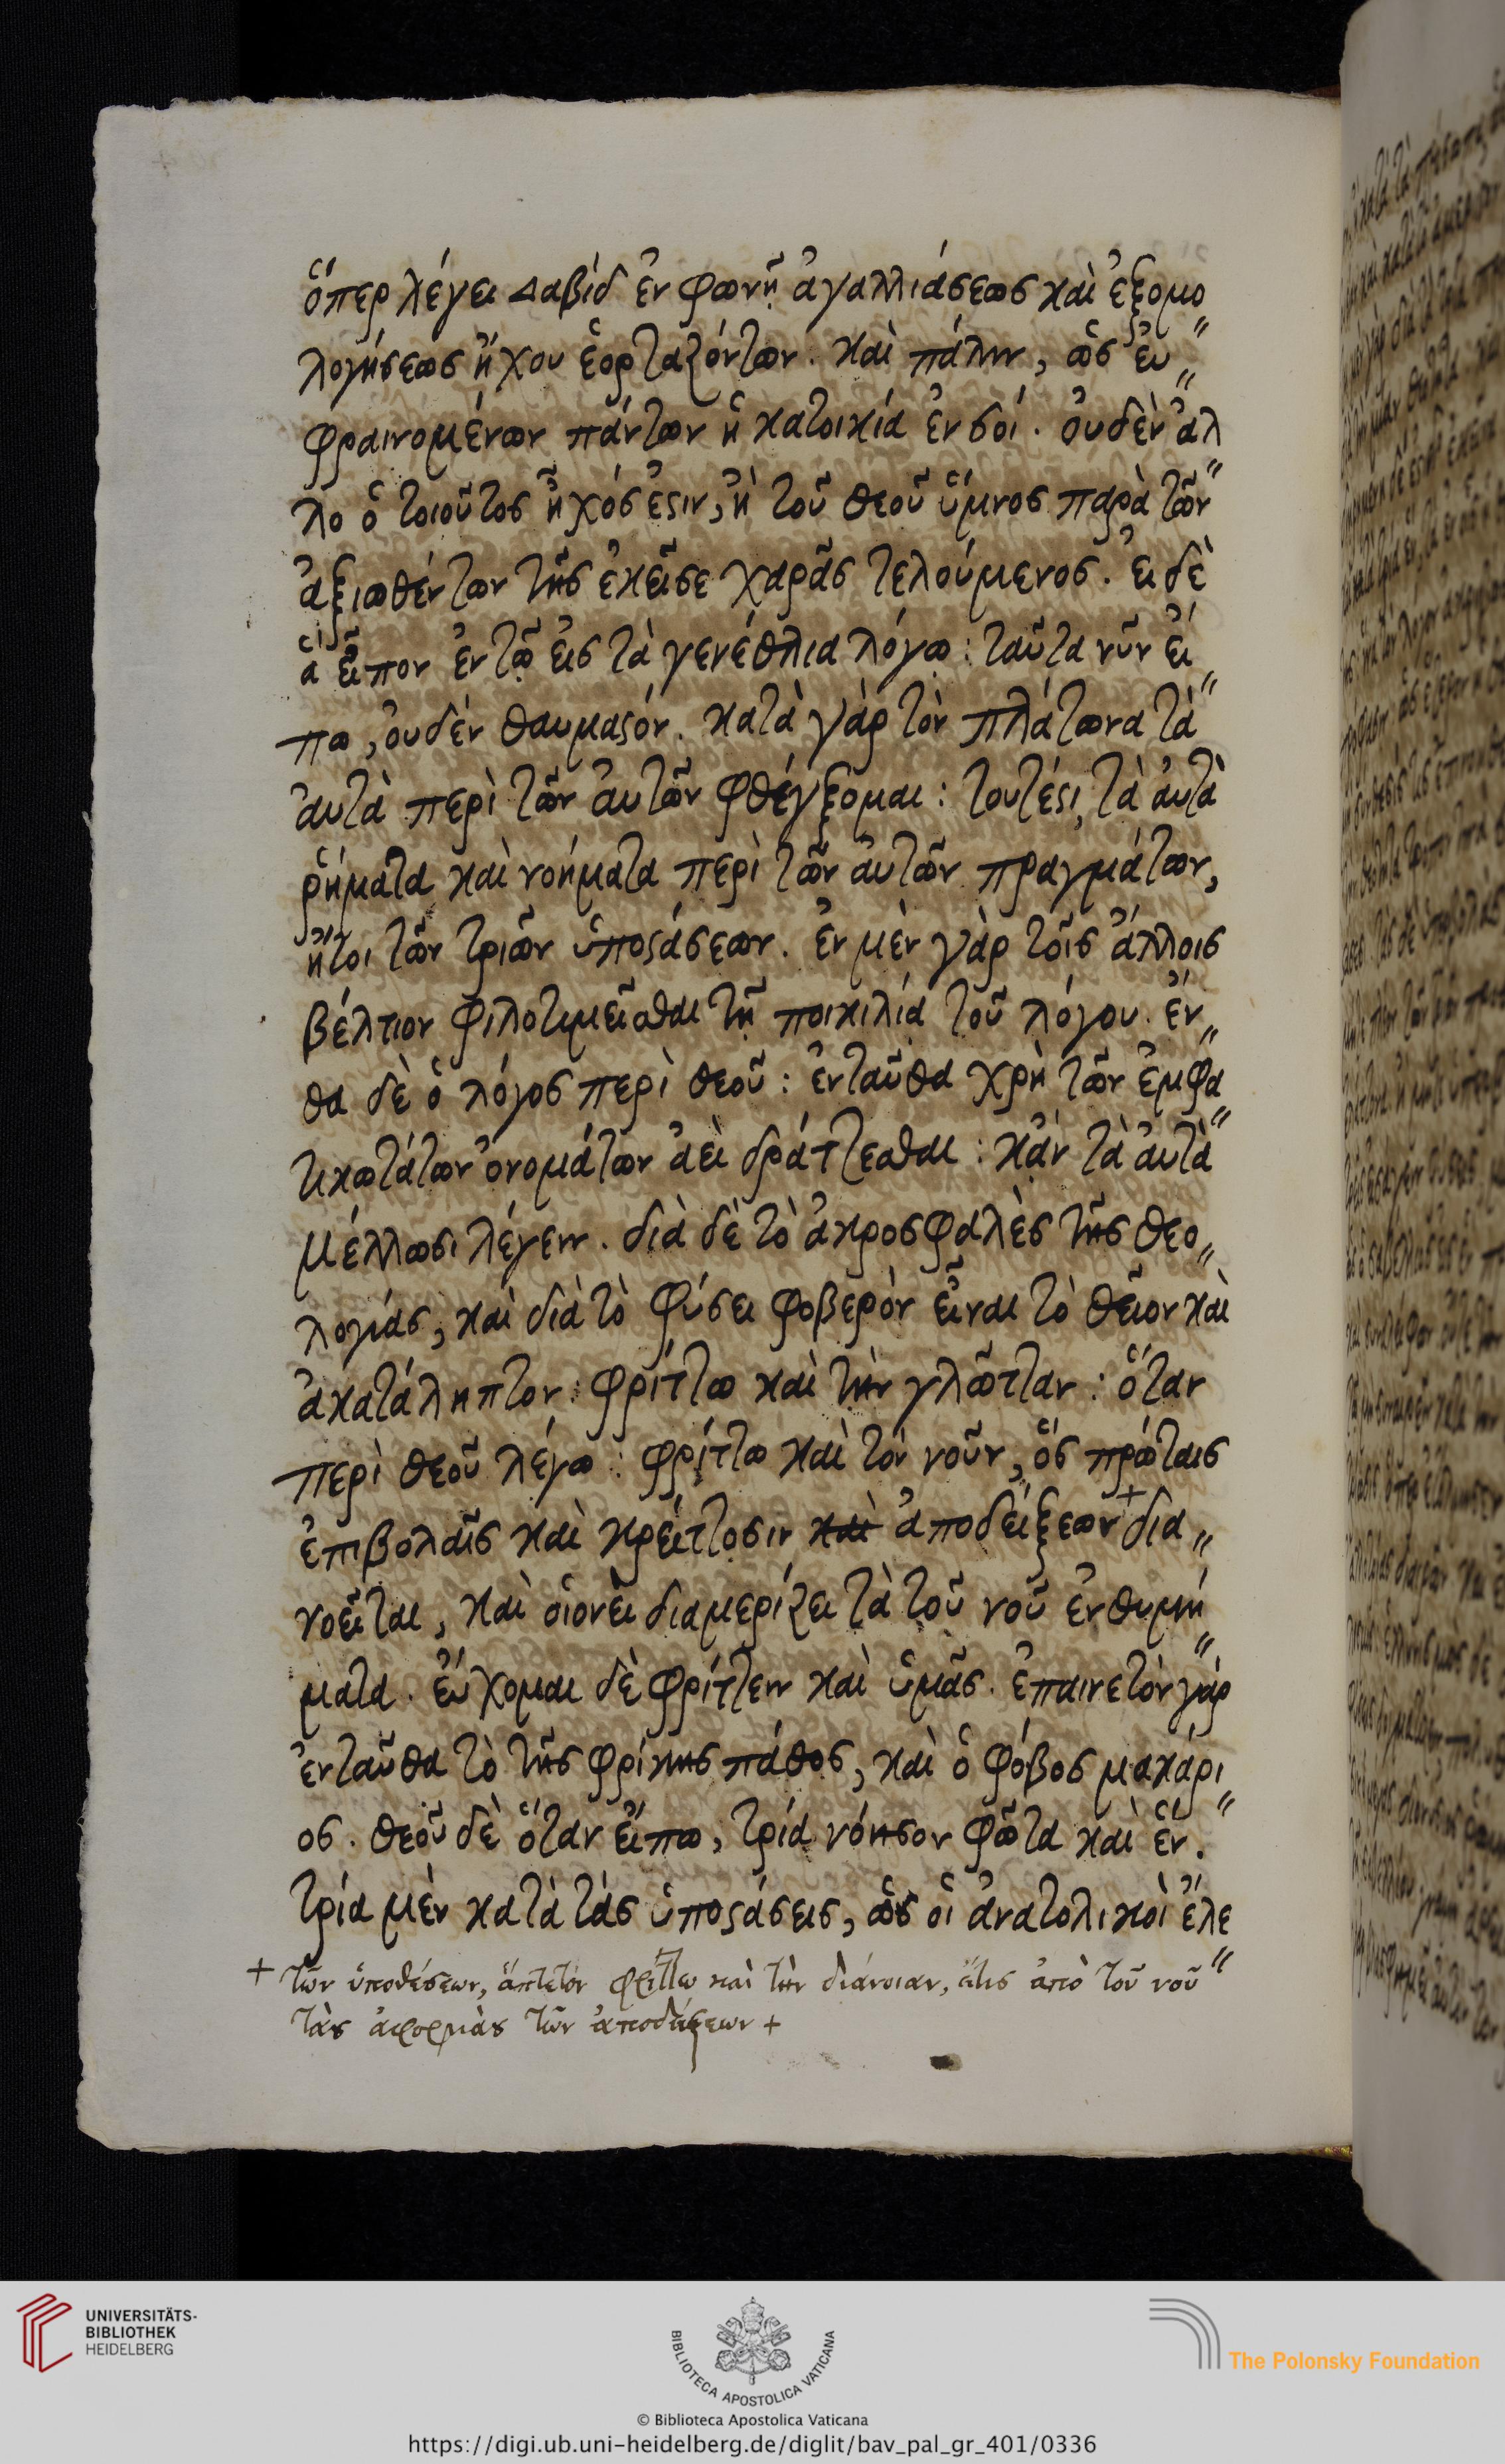 ὅπερ λέγει Δαβίδ ἐν φωνῇ ἀγαλλιάσεως καὶ ἐξομο
λογήσεως ἤχου ἑορταζόντων. καὶ πάλιν, ὡς εὐ〃
φραινομένων πάντων ἡ κατοικία ἐν σοί. οὐδὲν ἀλ〃
λο ὁ τοιοῦτος ἦχός ἐςιν, ἢ τοῦ θεοῦ ὕμνος παρὰ τῶν
ἀξιωθέντων τῆς ἐκεῖσε χαρᾶς τελούμενος. εἰ δὲ
ἃ εἶπον ἐν τῷ εἰς τὰ γενέθλια λόγῳ: ταῦτα νῦν εἴ〃
πω, οὐδέν θαυμαςόν. κατὰ γὰρ τὸν πλάτωνα τὰ
αὐτὰ περὶ τῶν αὐτῶν φθέγξομαι: τουτέςι, τὰ αὐτὰ
ῥήματα καὶ νοήματα περὶ τῶν αὐτῶν πραγμάτων,
ἤτοι τῶν τριῶν ὑποςάσεων. ἐν μὲν γὰρ τοῖς ἄλλοις
βέλτιον φιλοτιμεῖσθαι τῇ ποικιλία τοῦ λόγου. ἔν〃
θα δὲ ὁ λόγος περὶ θεοῦ: ἐνταῦθα χρὴ τῶν ἐμφα〃
τικωτάτων ὀνομάτων ἀεὶ δράττεσθαι: κἂν τὰ αὐτὰ
μέλλωσι λέγειν. διὰ δὲ τὸ ἀκροσφαλὲς τῆς θεο〃
λογίας, καὶ διὰ τὸ φύσει φοβερὸν εἶναι τὸ θεῖον καὶ
ἀκατάληπτον: φρίττω καὶ τὴν γλῶτταν: ὅταν
περὶ θεοῦ λέγω: φρίττω καὶ τόν νοῦν, ὅς πρώταις
ἐπιβολαῖς καὶ κρείττοσιν καὶ ἀποδείξεων + δια〃
νοεῖται, καὶ οἱονεὶ διαμερίζει τὰ τοῦ νοῦ ἐνθυμή〃
ματα. εὔχομαι δὲ φρίττειν καὶ ὑμᾶς. ἐπαινετὸν γάρ
ἐνταῦθα τὸ τῆς φρίκης πάθος, καὶ ὁ φόβος μακάρι〃
ος. θεοῦ δὲ ὅταν εἴπω, τρία νόησον φῶτα καὶ ἕν.
τρία μὲν κατὰ τὰς ὑποςάσεις, ὡς οἱ ἀνατολικοὶ ἔλε〃
+ τῶν ὑποθέσεων, ἅπτεται φρίττω καὶ τὴν διάνοιαν, ἥτις ἀπὸ τοῦ νοῦ
τὰς ἀφορμὰς τῶν ἀποδείξεων +
UNIVERSITÄTS-
BIBLIOTHEK
HEIDELBERG
BIBLIOTECA APOSTOLICA VATICANA
The Polonsky Foundation
© Biblioteca Apostolica Vaticana
https://digi.ub.uni-heidelberg.de/diglit/bav_pal_gr_401/0336